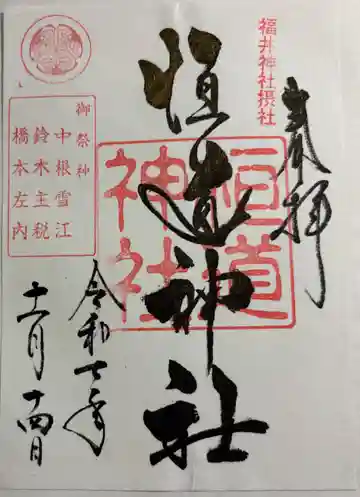 福井神社摂社
奉拝
恒道神社
恒道
神社
御祭神
中根雪江
鈴木主税
橋本左内
令和七年
十一月十四日